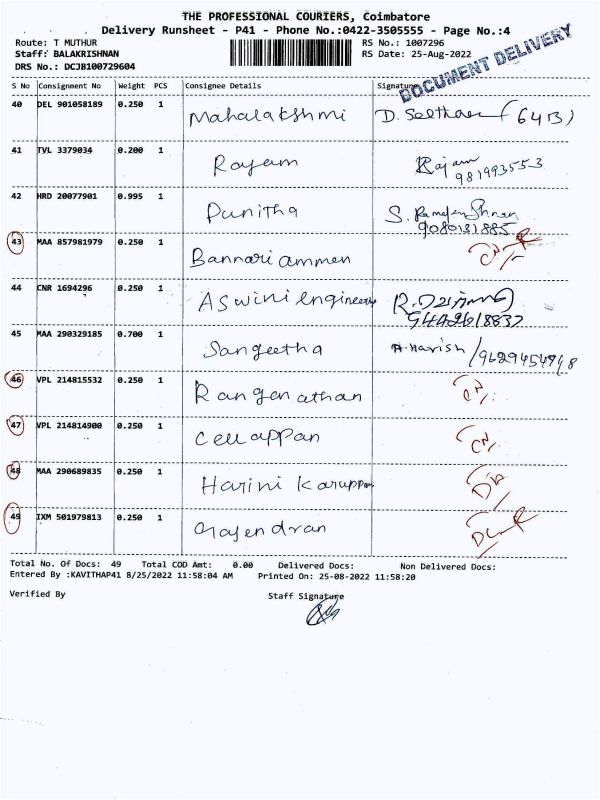 THE PROFESSIONAL COURIERS, Coimbatore
Delivery Runsheet - P41 - Phone No.:0422-3505555 - Page No.:4
Route: T MUTHUR RS No.: 1007296
Staff: BALAKRISHNAN RS Date: 25-Aug-2022
DRS No.: DCJB100729604
DOCUMENT DELIVERY
S No Consignment No Weight PCS Consignee Details Signature
40 DEL 901058189 0.250 1 Mahalakshmi D. (64B)
41 TVL 3379034 0.200 1 Rajam Rajam
981993553
42 HRD 20077901 0.995 1 Punitha S.
9080131885
43 MAA 857981979 0.250 1 Bannari ammen
44 CNR 1694296 0.250 1 Aswini engineering
45 MAA 290329185 0.700 1 Sangeetha A. Harish / 9629454918
46 VPL 214815532 0.250 1 Rangenathan
47 VPL 214814900 0.250 1 Cellappan
48 MAA 290689835 0.250 1 Harini Karuppan
49 IXM 501979813 0.250 1 Gajendran
Total No. Of Docs: 49 Total COD Amt: 0.00 Delivered Docs: Non Delivered Docs:
Entered By :KAVITHAP41 8/25/2022 11:58:04 AM Printed On: 25-08-2022 11:58:20
Verified By Staff Signature